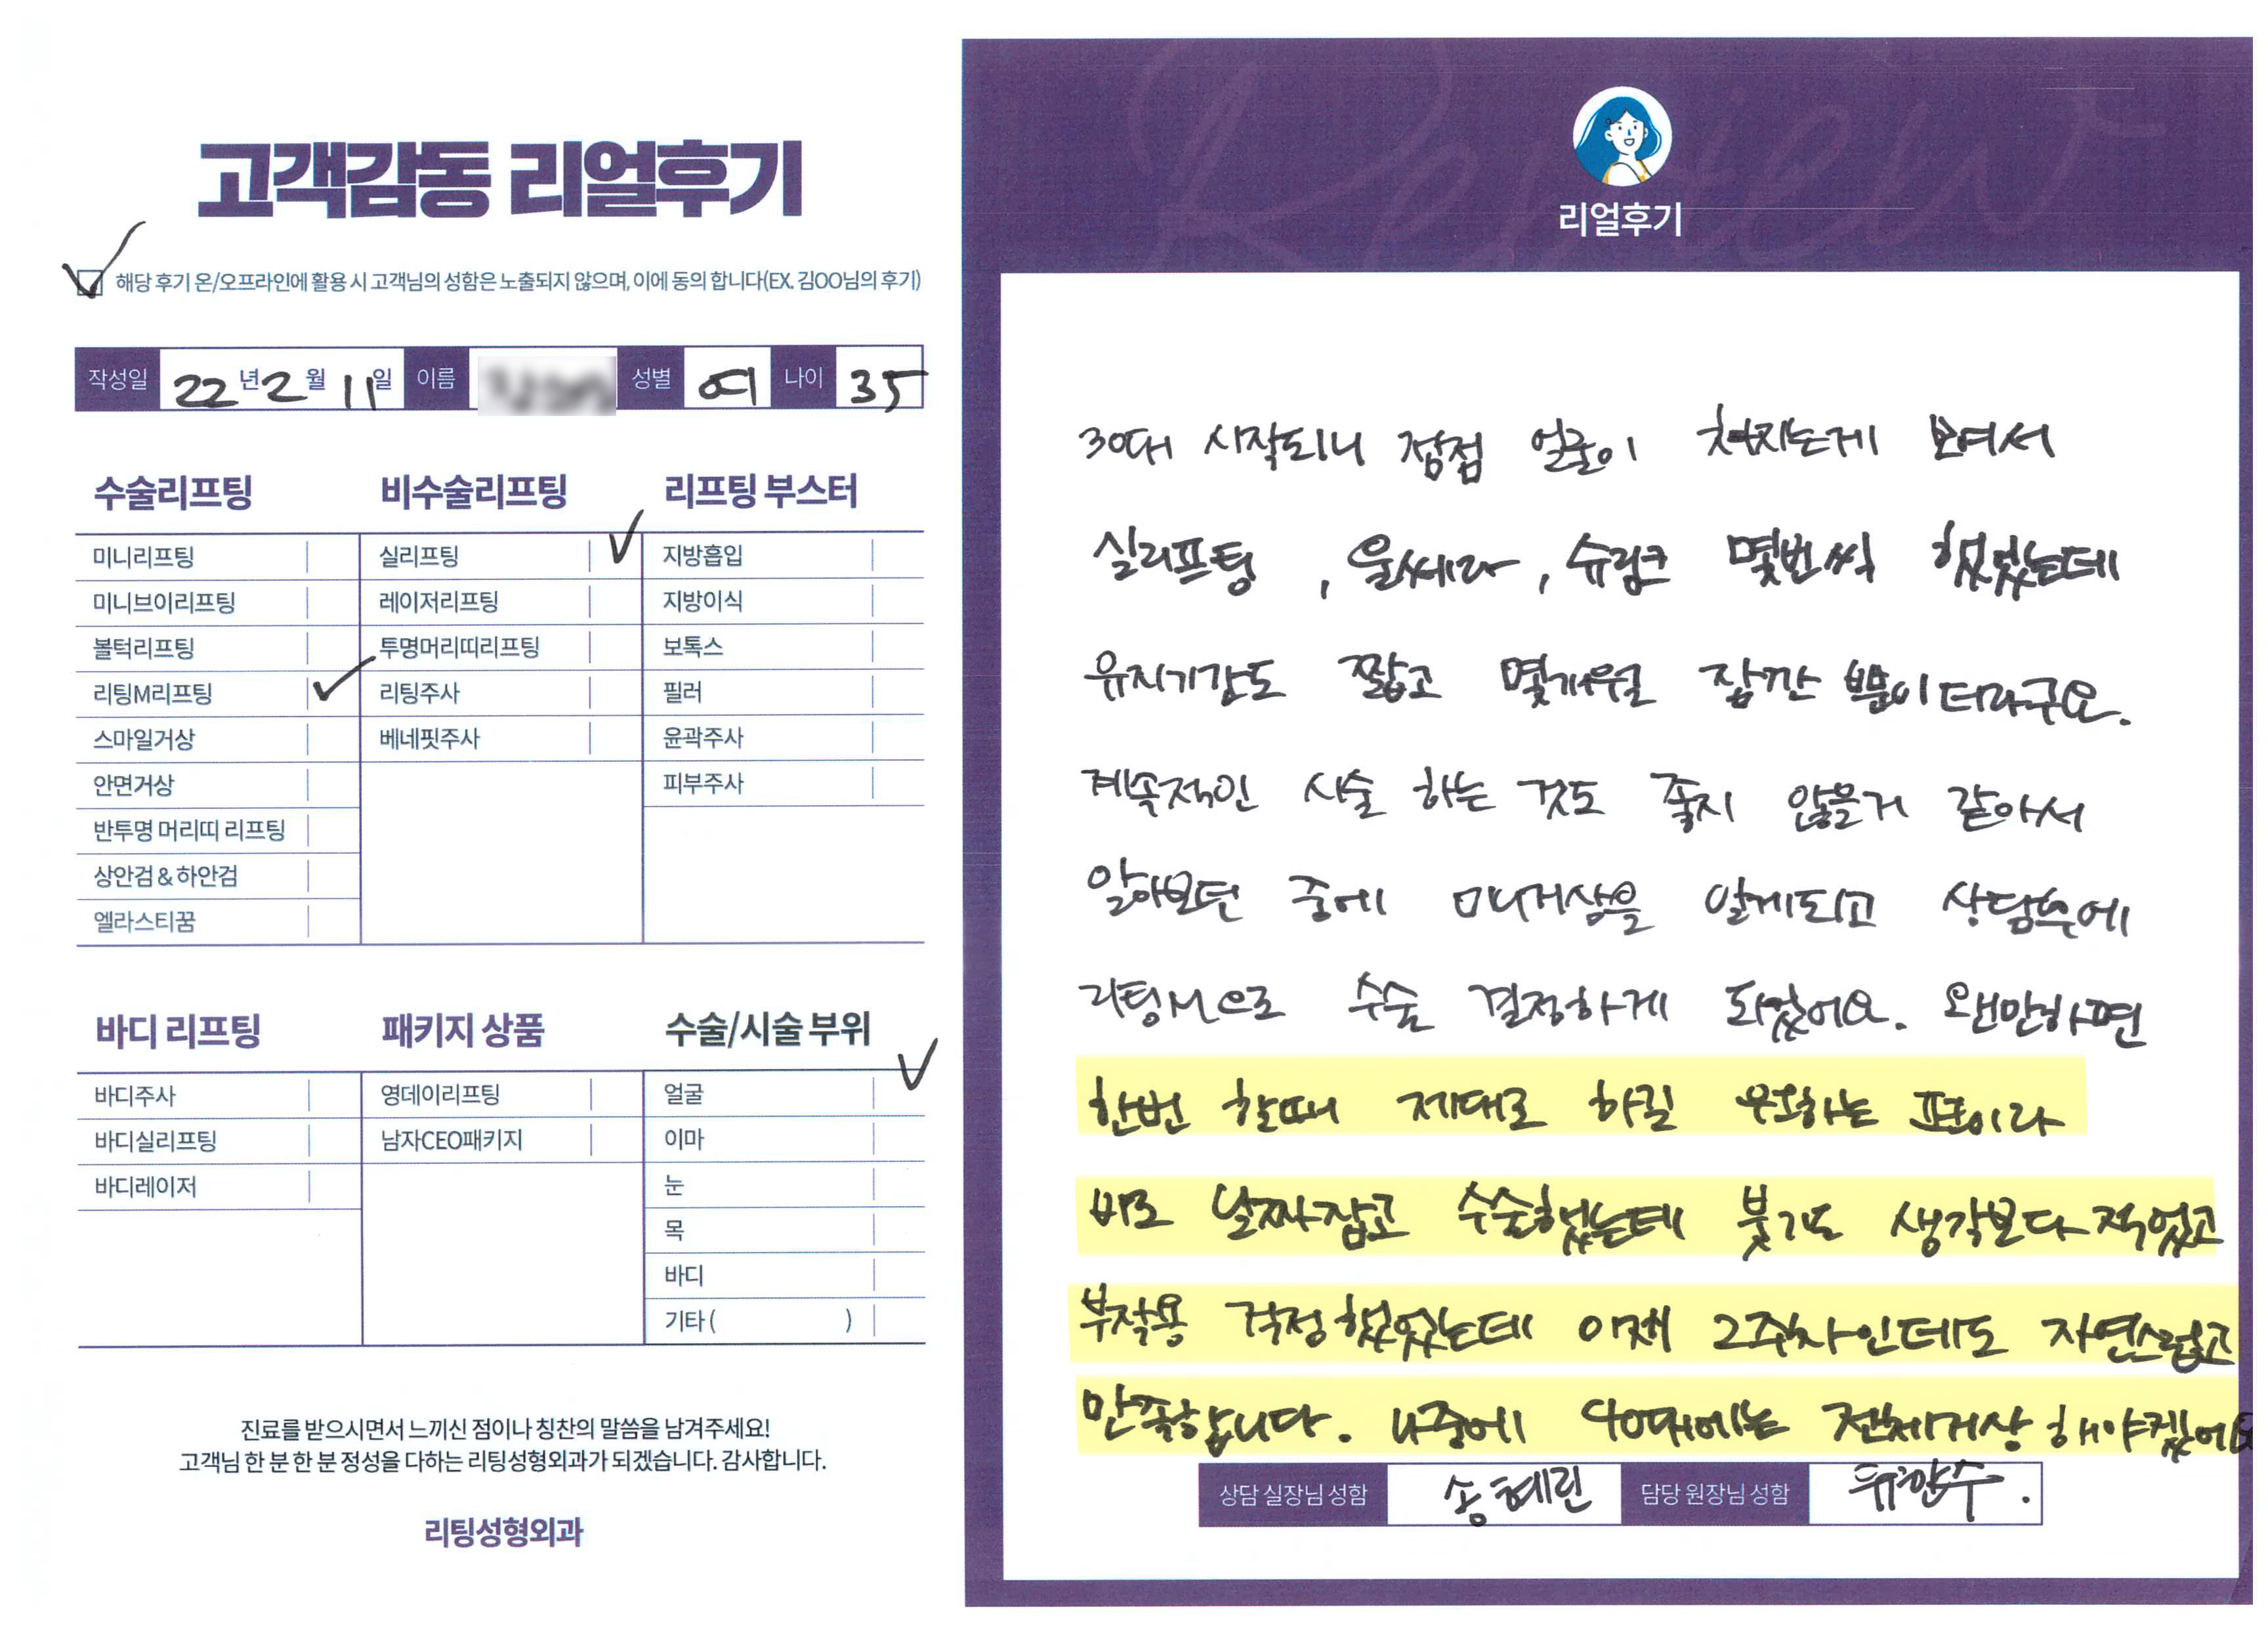 고객감동 리얼후기
해당 후기 온/오프라인에 활용 시 고객님의 성함은 노출되지 않으며, 이에 동의 합니다(EX. 김OO님의 후기)
작성일 22년 2월 11일 이름 성별 여 나이 35
수술리프팅
미니리프팅
미니브이리프팅
볼턱리프팅
리팅M리프팅
스마일거상
안면거상
반투명 머리띠 리프팅
상안검 & 하안검
엘라스티꿈
비수술리프팅
실리프팅
레이저리프팅
투명머리띠리프팅
리팅주사
베네핏주사
리프팅 부스터
지방흡입
지방이식
보톡스
필러
윤곽주사
피부주사
바디 리프팅
바디주사
바디실리프팅
바디레이저
패키지 상품
영데이리프팅
남자CEO패키지
수술/시술 부위
얼굴
이마
눈
목
바디
기타 ( )
진료를 받으시면서 느끼신 점이나 칭찬의 말씀을 남겨주세요!
고객님 한 분 한 분 정성을 다하는 리팅성형외과가 되겠습니다. 감사합니다.
리팅성형외과
Review
리얼후기
30대 시작되니 점점 얼굴이 쳐지는게 보여서
실리프팅, 울쎄라, 슈링크 몇번씩 했었는데
유지기간도 짧고 몇개월 잠깐 뿐이더라구요.
계속적인 시술 하는 것도 좋지 않을거 같아서
알아보던 중에 미니거상을 알게되고 상담후에
리팅M으로 수술 결정하게 되었어요. 왠만하면
한번 할때 제대로 하길 원하는 편이라
바로 날짜잡고 수술했는데 붓기도 생각보다 적었고
부작용 걱정했었는데 이제 2주차인데도 자연스럽고
만족합니다. 나중에 40대에는 전체거상 해야겠어요
상담 실장님 성함 송혜린 담당 원장님 성함